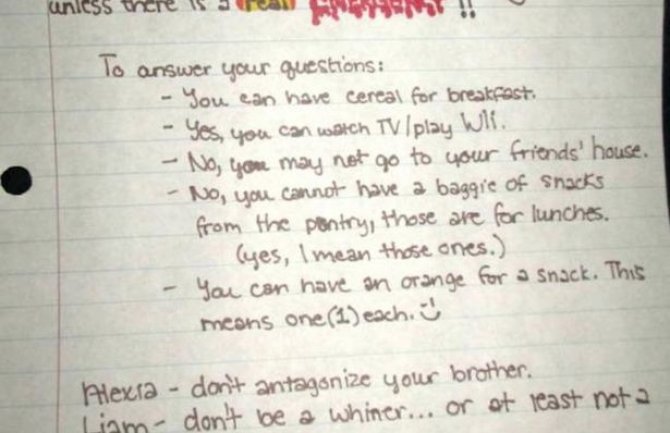 unless there is a real emergency !!
To answer your questions:
- You can have cereal for breakfast.
- Yes, you can watch TV/play Wii.
- No, you may not go to your friends' house.
- No, you cannot have a baggie of snacks
from the pantry, those are for lunches.
(yes, I mean those ones.)
- You can have an orange for a snack. This
means one (1) each. :)
Alexia - don't antagonize your brother.
Liam - don't be a whiner... or at least not a